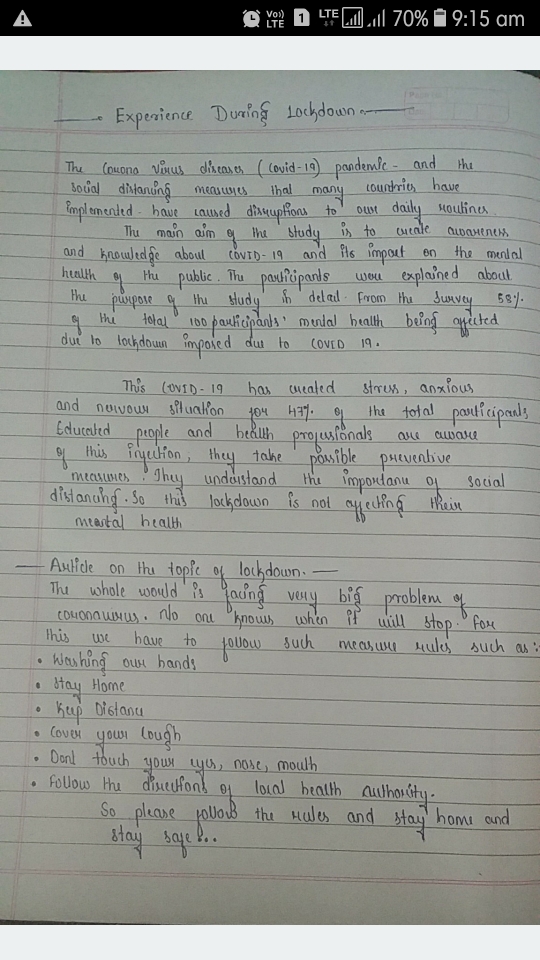 Vo)) LTE 1 LTE 70% 9:15 am
Experience During Lockdown
The Corona Virus diseases (Covid-19) pandemic - and the
social distancing measures that many countries have
implemented - have caused disruptions to our daily routines.
The main aim of the study is to create awareness
and knowledge about COVID-19 and its impact on the mental
health of the public. The participants were explained about
the purpose of the study in detail. From the survey 53%
of the total 100 participants' mental health being affected
due to lockdown imposed due to COVID 19.
This COVID-19 has created stress, anxious
and nervour situation for 47% of the total participants
Educated people and health profusionals are aware
of this infection, they take possible preventive
measures. They understand the importance of social
distancing. So this lockdown is not affecting their
mental health
Article on the topic of lockdown.
The whole would is facing very big problem of
coronavirus. No one knows when it will stop. For
this we have to follow such measure rules such as:
• Washing our hands
• Stay Home
• Keep Distance
• Cover your Cough
• Dont touch your eyes, nose, mouth
• Follow the directions of local health authority.
So please follow the rules and stay home and
stay safe!..